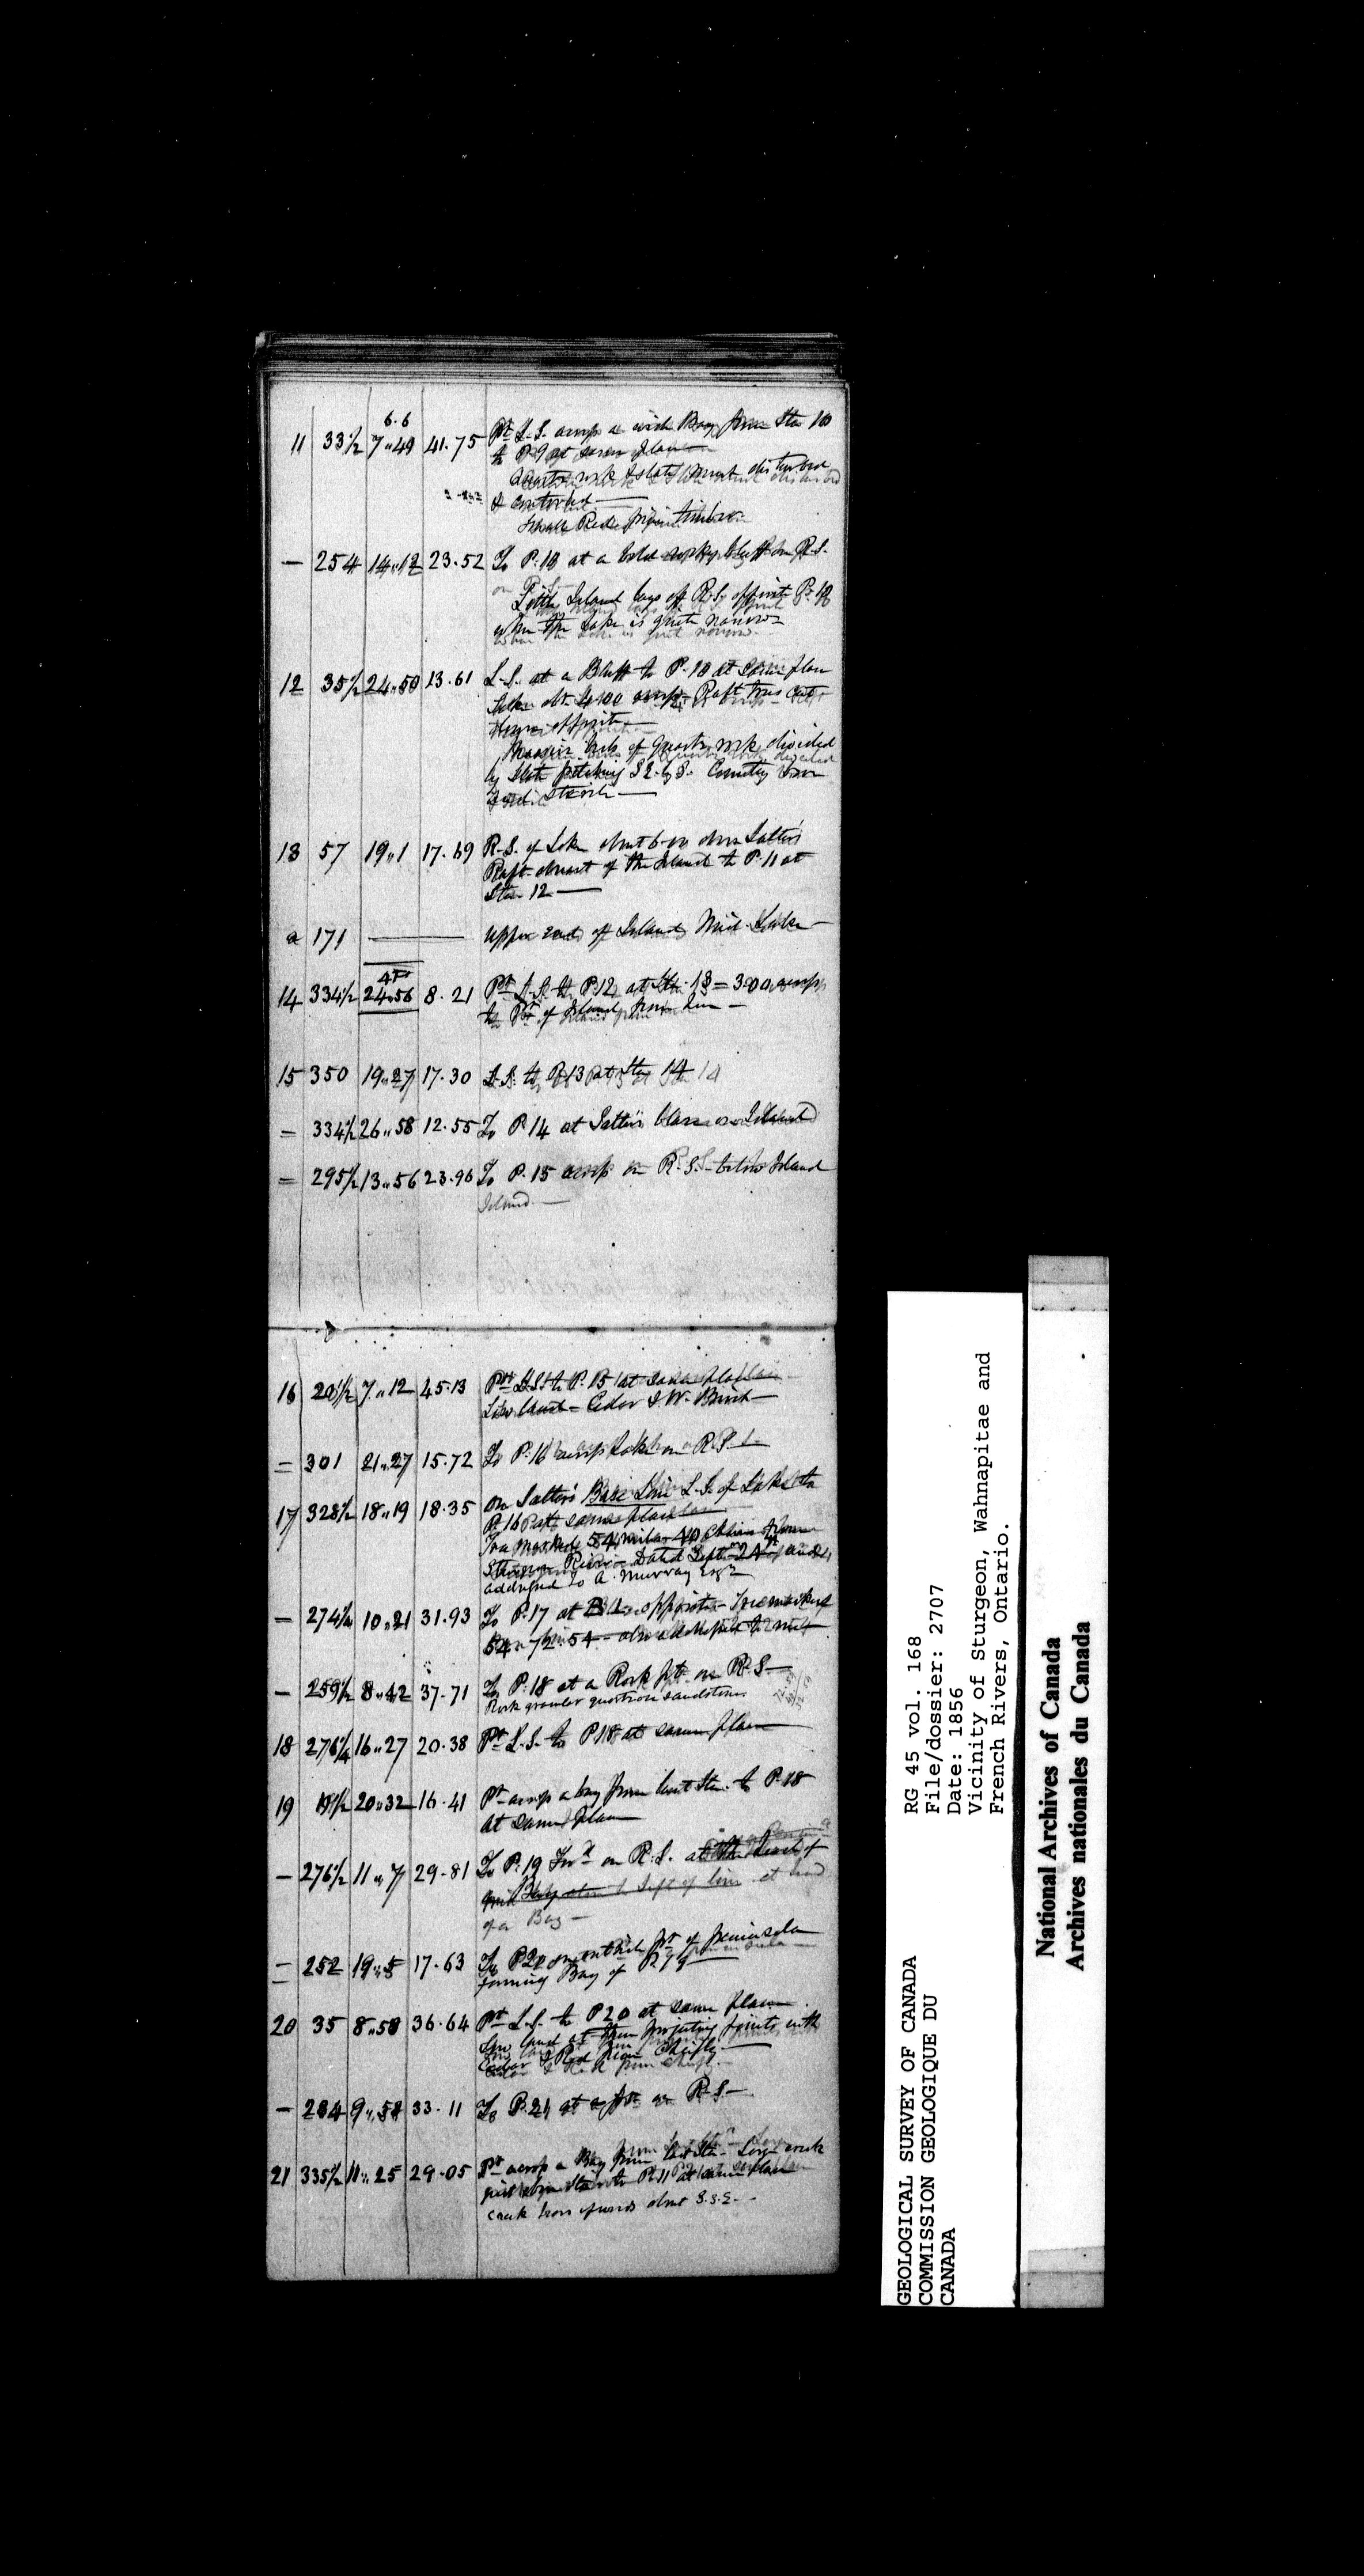 6.6
11 33½ 7„49 41.75 Pt L.S. across a wide Bay from Sta 10
to P.9 at same place
Quartz rock & slate much disturbed
& contorted —
Small Red pine timber
— 254 14„12 23.52 To P.10 at a bold rocky bluff on R.S.
Little Island lays off R.S. opposite P. 10
where the Lake is quite narrow
12 35½ 24„50 13.61 L.S. at a Bluff to P.10 at same place
Lake abt 400 across
opposite
Massive beds of Quartz rock divided
by slate pitching S.E. by S. Country
13 57 19„1 17.69 R.S. of Lake about 600 above Salter's
Raft abreast of the Island to P.11 at
Sta. 12 —
a 171 Upper end of Island Mid Lake —
14 334½ 24„56 8.21 Pt L.S. to P.12 at Sta. 13 = 300 across
to Pt of Island from here —
15 350 19„27 17.30 L.S. to P.13 at Sta 14
= 334½ 26„58 12.55 To P.14 at Salter's on Island
= 295½ 13„56 23.96 To P.15 across on R.S. below Island
Island —
16 20½ 7„12 45.13 Pt L.S. to P.15 at same place
Low land — Cedar & W. Birch —
= 301 21„27 15.72 To P.16 across Lake on R.S.
17 328½ 18„19 18.35 On Salter's Base Line L.S. of Lake to
P.16 at same place
Tree marked 54 miles 40 chains from
Sturgeon River — Dated Sept. 24th and
addressed to A. Murray Esqr
— 274¼ 10„21 31.93 To P.17 at B L opposite — Tree marked
54 - 72.54 — also addressed to me
— 259½ 8„42 37.71 To P.18 at a Rock pt on R.S —
Rock granular quartzose sandstone
18 276¼ 16„27 20.38 Pt L.S. to P.18 at same place
19 19½ 20„32 16.41 Pt across a bay from last Sta. to P.18
at same place
— 276½ 11„7 29.81 To P.19 on R.S. at the head of
left of line at head
of a Bay —
= 252 19„5 17.63 To P.20 on outside pt of peninsula
forming Bay of P.19
20 35 8„50 36.64 Pt L.S. to P20 at same place
Low land at projecting points with
Cedar & Red pine chiefly —
— 284 9„58 33.11 To P.21 at a pt on R.S —
21 335½ 11„25 29.05 Pt across a Bay from last Sta — Large creek
at same place
creek bears upwards about S.S.E. —
RG 45 vol. 168
File/dossier: 2707
Date: 1856
Vicinity of Sturgeon, Wahnapitae and
French Rivers, Ontario.
GEOLOGICAL SURVEY OF CANADA
COMMISSION GEOLOGIQUE DU
CANADA
National Archives of Canada
Archives nationales du Canada